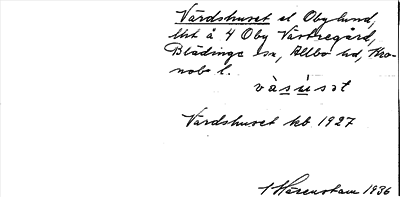 Värdshuset el Obylund,
lht å 4 Oby Västregård,
Blädinge sn, Allbo hd, Kro-
nobs l.
vàsúsət
Värdshuset kb. 1927
Hasenstam 1936